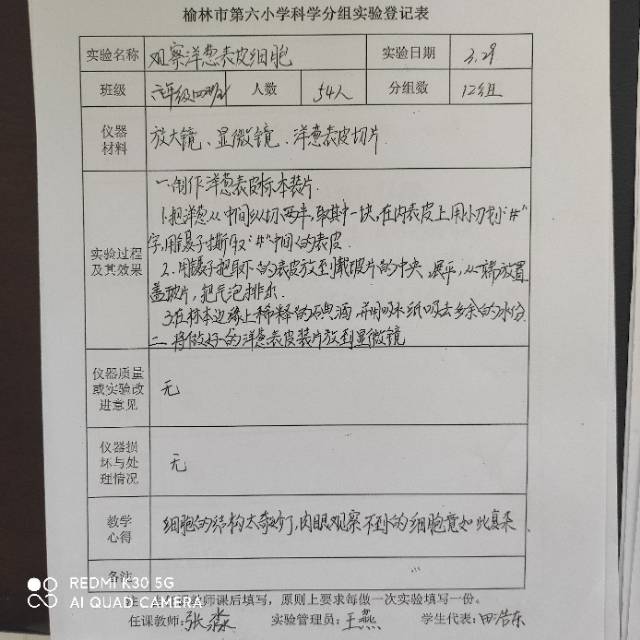 榆林市第六小学科学分组实验登记表
实验名称 观察洋葱表皮细胞 实验日期 3.29
班级 六年级四班 人数 54人 分组数 12组
仪器材料 放大镜、显微镜、洋葱表皮切片
实验过程及其效果
一.制作洋葱表皮标本装片.
1.把洋葱从中间纵切两半,取其中一块,在内表皮上用小刀划"井"
字,用镊子撕取"井"中间的表皮
2.用镊子把取下的表皮放到载玻片的中央,展平,从一端放置
盖玻片,把气泡排出.
3.在标本边缘上稀释的碘酒,并用吸水纸吸去多余的水份.
二.将做好的洋葱表皮装片放到显微镜
仪器质量或实验改进意见 无
仪器损坏与处理情况 无
教学心得 细胞的结构太奇妙了,肉眼观察不到的细胞竟如此复杂.
备注
师课后填写,原则上要求每做一次实验填写一份。
任课教师:张淼 实验管理员:王燕 学生代表:田浩东
REDMI K30 5G
AI QUAD CAMERA